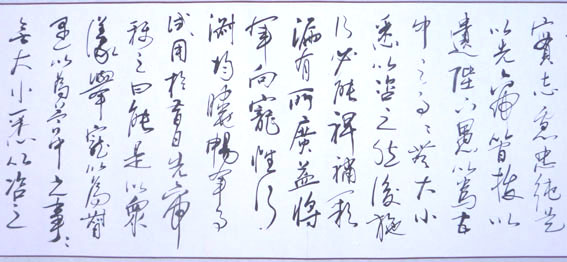 實志慮忠純是
以先帝簡拔以
遺陛下愚以為宮
中之事々無大小
悉以咨之然後施
行必能裨補闕
漏有所廣益將
軍向寵性行
淑均曉暢軍事
試用於昔日先帝
稱之曰能是以眾
議舉寵以為督
愚以為營中之事々
無大小悉以咨之